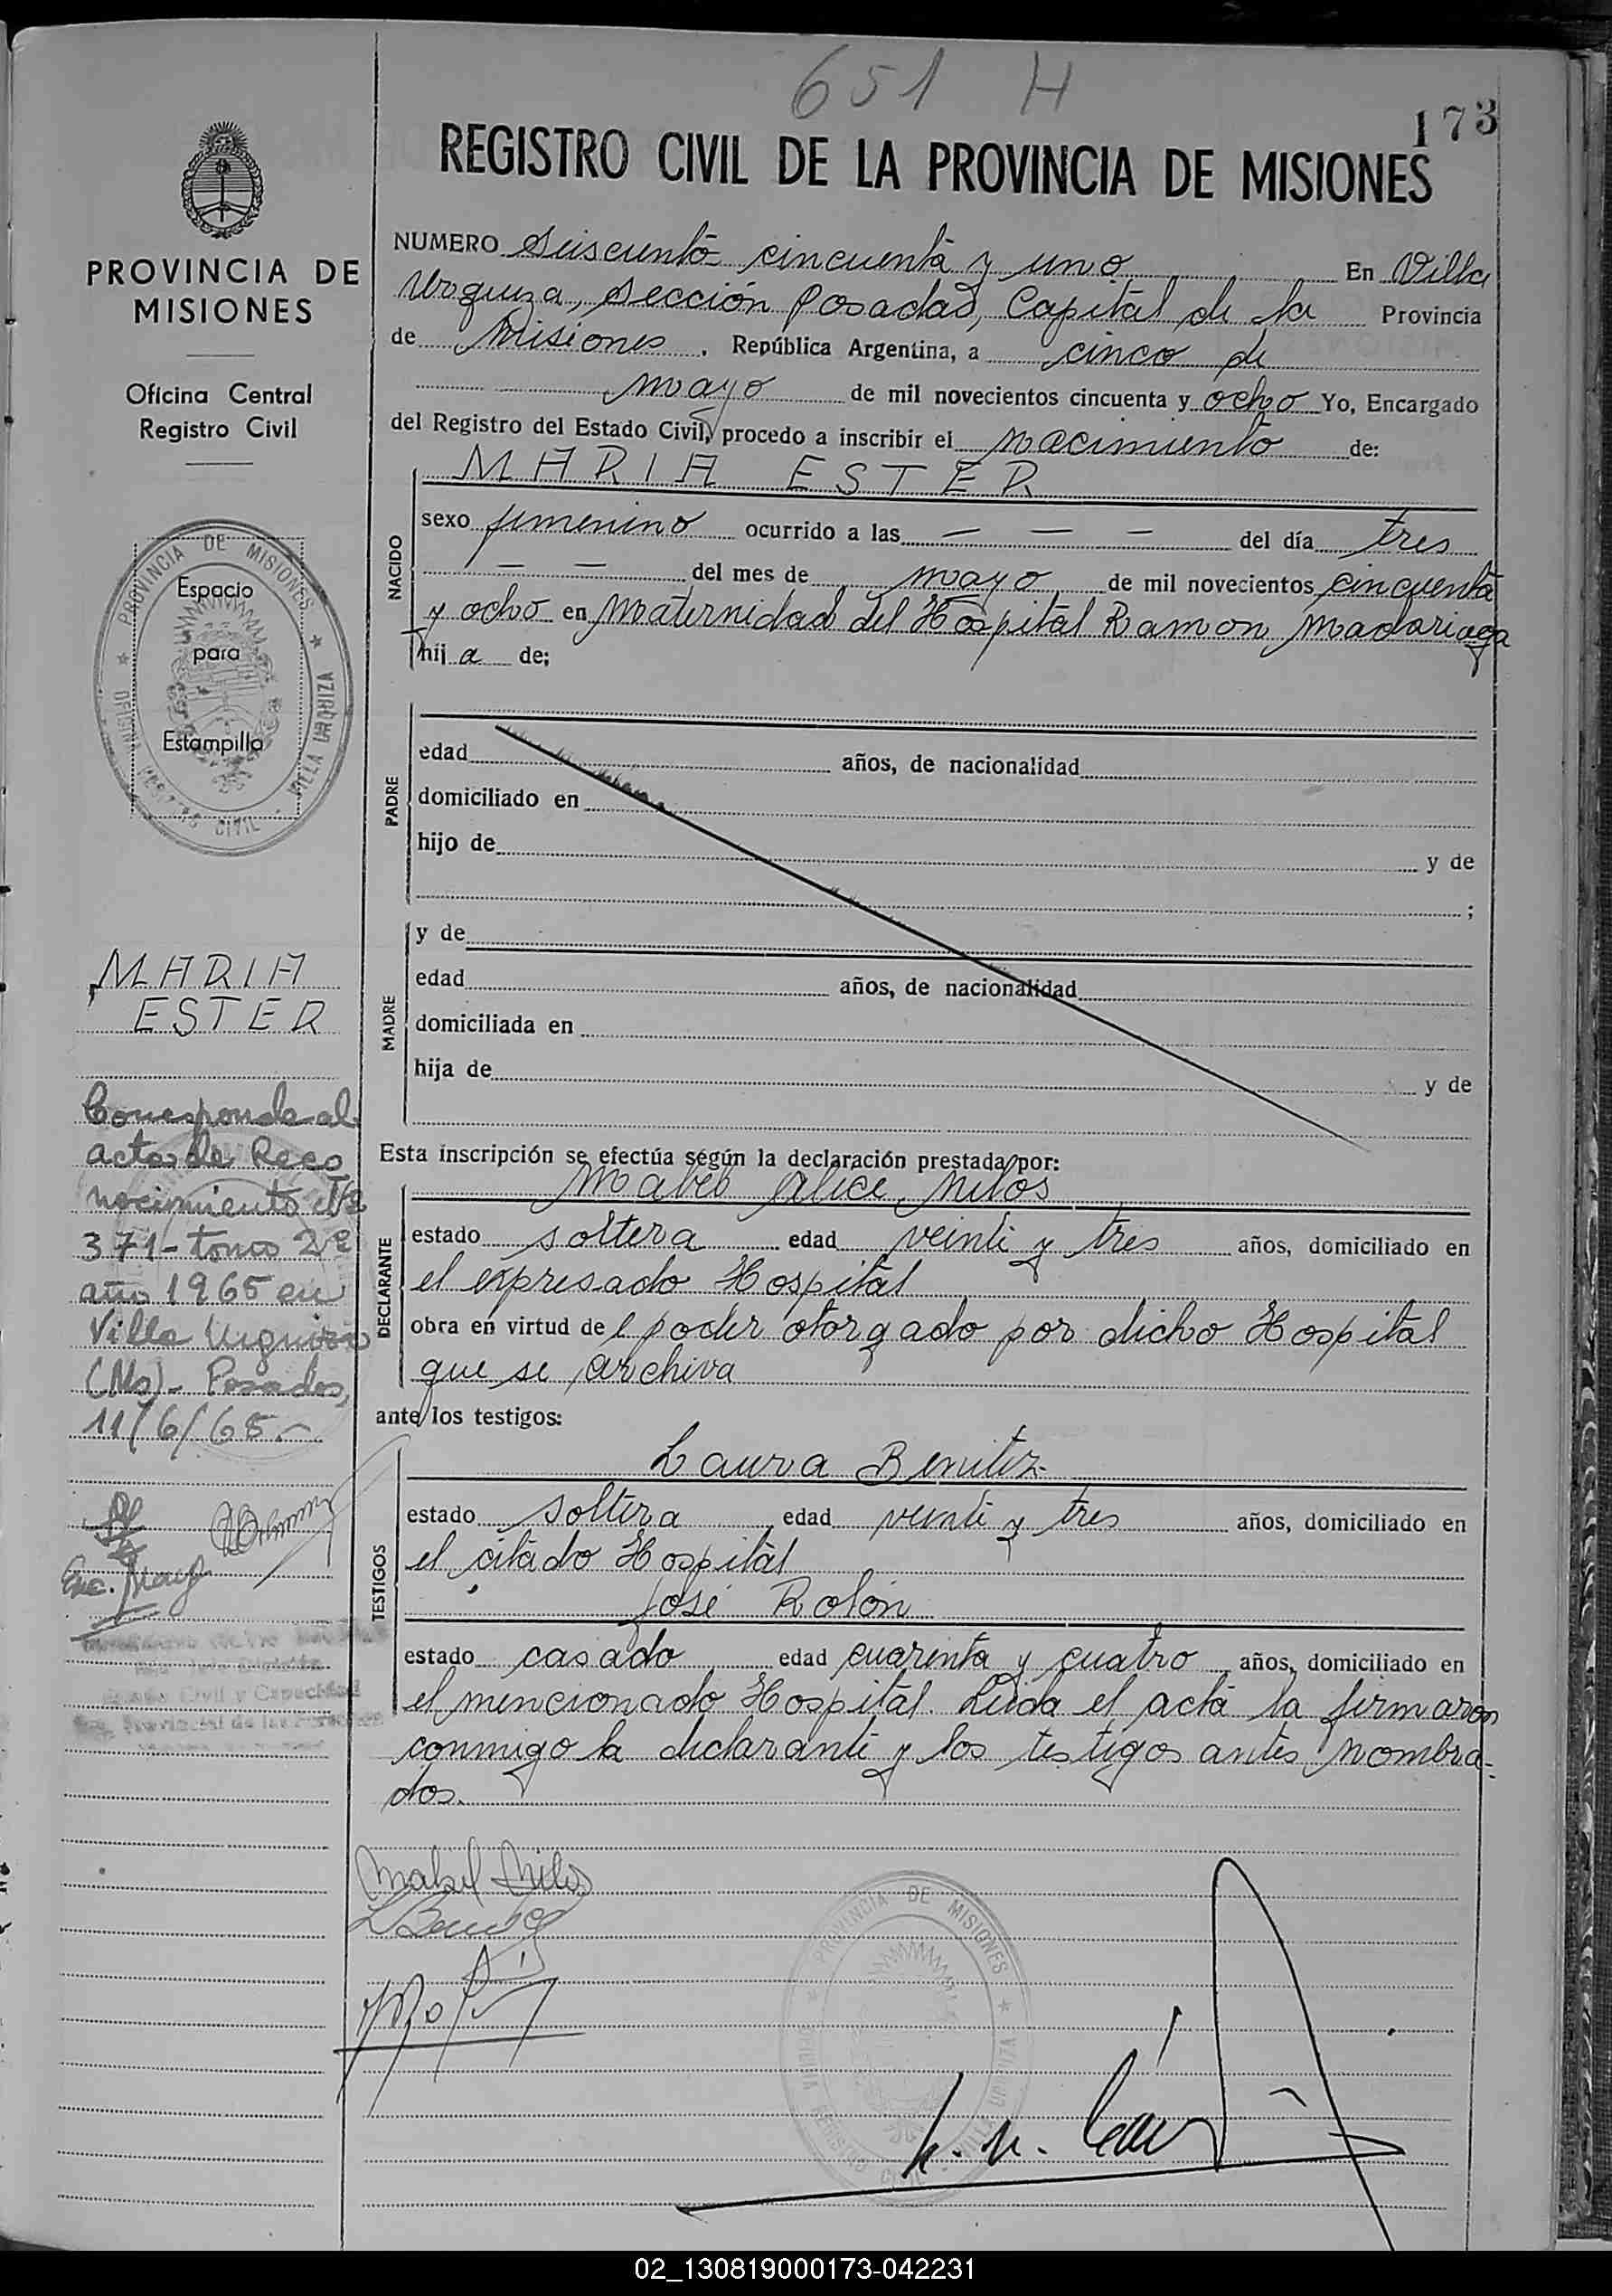 651 H
173
REGISTRO CIVIL DE LA PROVINCIA DE MISIONES
PROVINCIA DE
MISIONES
Oficina Central
Registro Civil
PROVINCIA DE MISIONES
VILLA URQUIZA
Espacio
para
Estampilla
MARIA
ESTER
Corresponde al
acta de Reco
nocimiento Nº
371 - tomo 2º
año 1965 en
Villa Urquiza
(Ms) - Posadas,
11/6/65.-
NUMERO Seiscento cincuenta y uno En Villa
Urquiza, sección Posadas, Capital de la Provincia
de Misiones. República Argentina, a cinco de
mayo de mil novecientos cincuenta y ocho Yo, Encargado
del Registro del Estado Civil, procedo a inscribir el nacimiento de:
MARIA ESTER
NACIDO
sexo femenino ocurrido a las — — — del día tres
— — del mes de mayo de mil novecientos cincuenta
y ocho en Maternidad del Hospital Ramon Madariaga
hij a de;
PADRE
edad años, de nacionalidad
domiciliado en
hijo de y de
;
MADRE
y de
edad años, de nacionalidad
domiciliada en
hija de y de
Esta inscripción se efectúa según la declaración prestada por:
DECLARANTE
Mabel Alice Milos
estado soltera edad veinti y tres años, domiciliado en
el expresado Hospital
obra en virtud del poder otorgado por dicho Hospital
que se archiva
ante los testigos:
TESTIGOS
Laura Benitez.
estado soltera edad veinti y tres años, domiciliado en
el citado Hospital
José Rolón
estado casado edad cuarenta y cuatro años, domiciliado en
el mencionado Hospital. Leída el acta la firmaron
conmigo la declarante y los testigos antes nombra-
dos.
Mabel Milos
L Benitez
PROVINCIA DE MISIONES
02_130819000173-042231